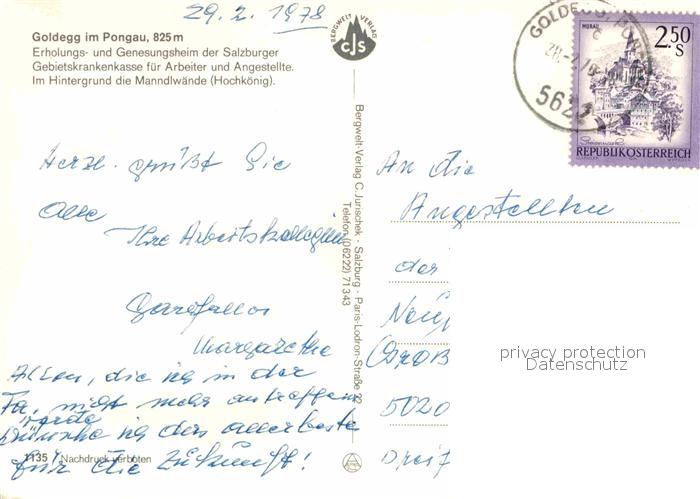 29. 2. 1978
Goldegg im Pongau, 825 m
Erholungs- und Genesungsheim der Salzburger
Gebietskrankenkasse für Arbeiter und Angestellte.
Im Hintergrund die Manndlwände (Hochkönig).
BERGWELT VERLAG
CJS
Herzl. grüßt Sie
alle
Ihre Arbeitskollegin
Garofallos
Margarethe
Allen, die ich in der
Fa. nicht mehr antreffen
werde
wünsche ich das allerbeste
für die Zukunft!
1135 Nachdruck verboten
Bergwelt-Verlag C. Jurischek - Salzburg - Paris-Lodron-Straße
Telefon (06222) 71343
5622
MURAU
2.50
S
REPUBLIK ÖSTERREICH
An die
Angestellten
der
5020
privacy protection
Datenschutz